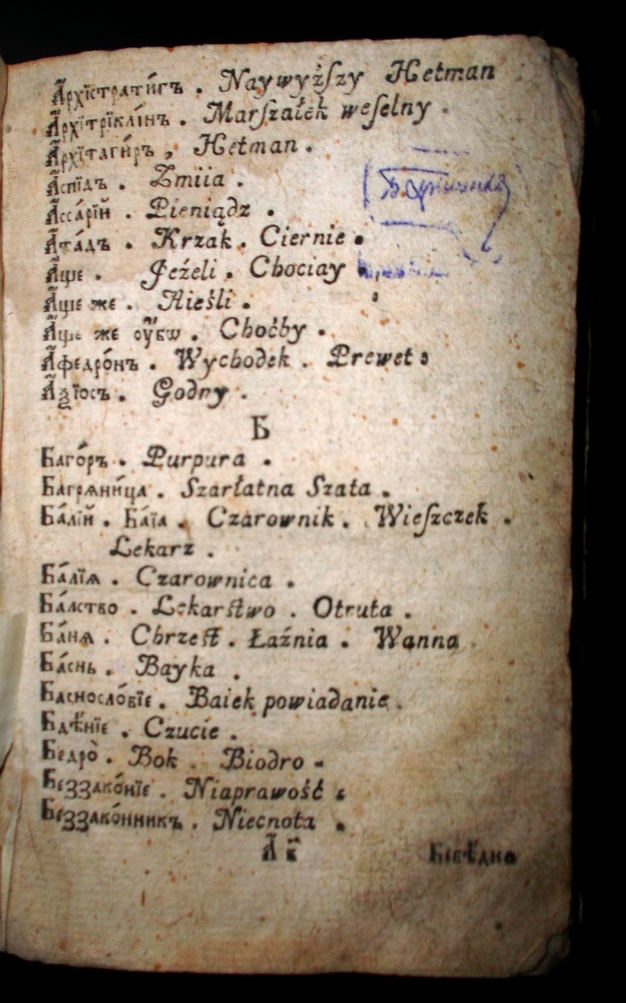 А҆рхїстрати́гъ . Naywyżſzy Hetman
А҆рхїтрїкли́нъ . Marſzałek weſelny .
А҆рхїтаги́ръ , Hetman .
А҆спїдъ . Żmiia .
А҆сса́рїй . Pieniądz .
А҆та́дъ . Krzak . Ciernie .
А҆ще . Jeżeli . Chociay .
А҆ще же . Aieśli .
А҆ще же ᲂу҆́бѡ . Choćby .
А҆федро́нъ . Wychodek . Prewet .
А҆ѯїосъ . Godny .
Б
Баго́ръ . Purpura .
Багрѧни́ца . Szarłatna Szata .
Ба́лїй . Ба́їа . Czarownik . Wieſzczek .
Lekarz .
Ба́лїѧ . Czarownica .
Ба́лство . Lekarſtwo . Otruta .
Ба́нѧ . Chrzeſt . Łaźnia . Wanna
Ба́снь . Bayka .
Басносло́вїе . Baiek powiadanie .
Бдѣ́нїе . Czucie .
Бедро̀ . Bok . Biodro .
Беззако́нїе . Niaprawość .
Беззако́нникъ . Niecnota .